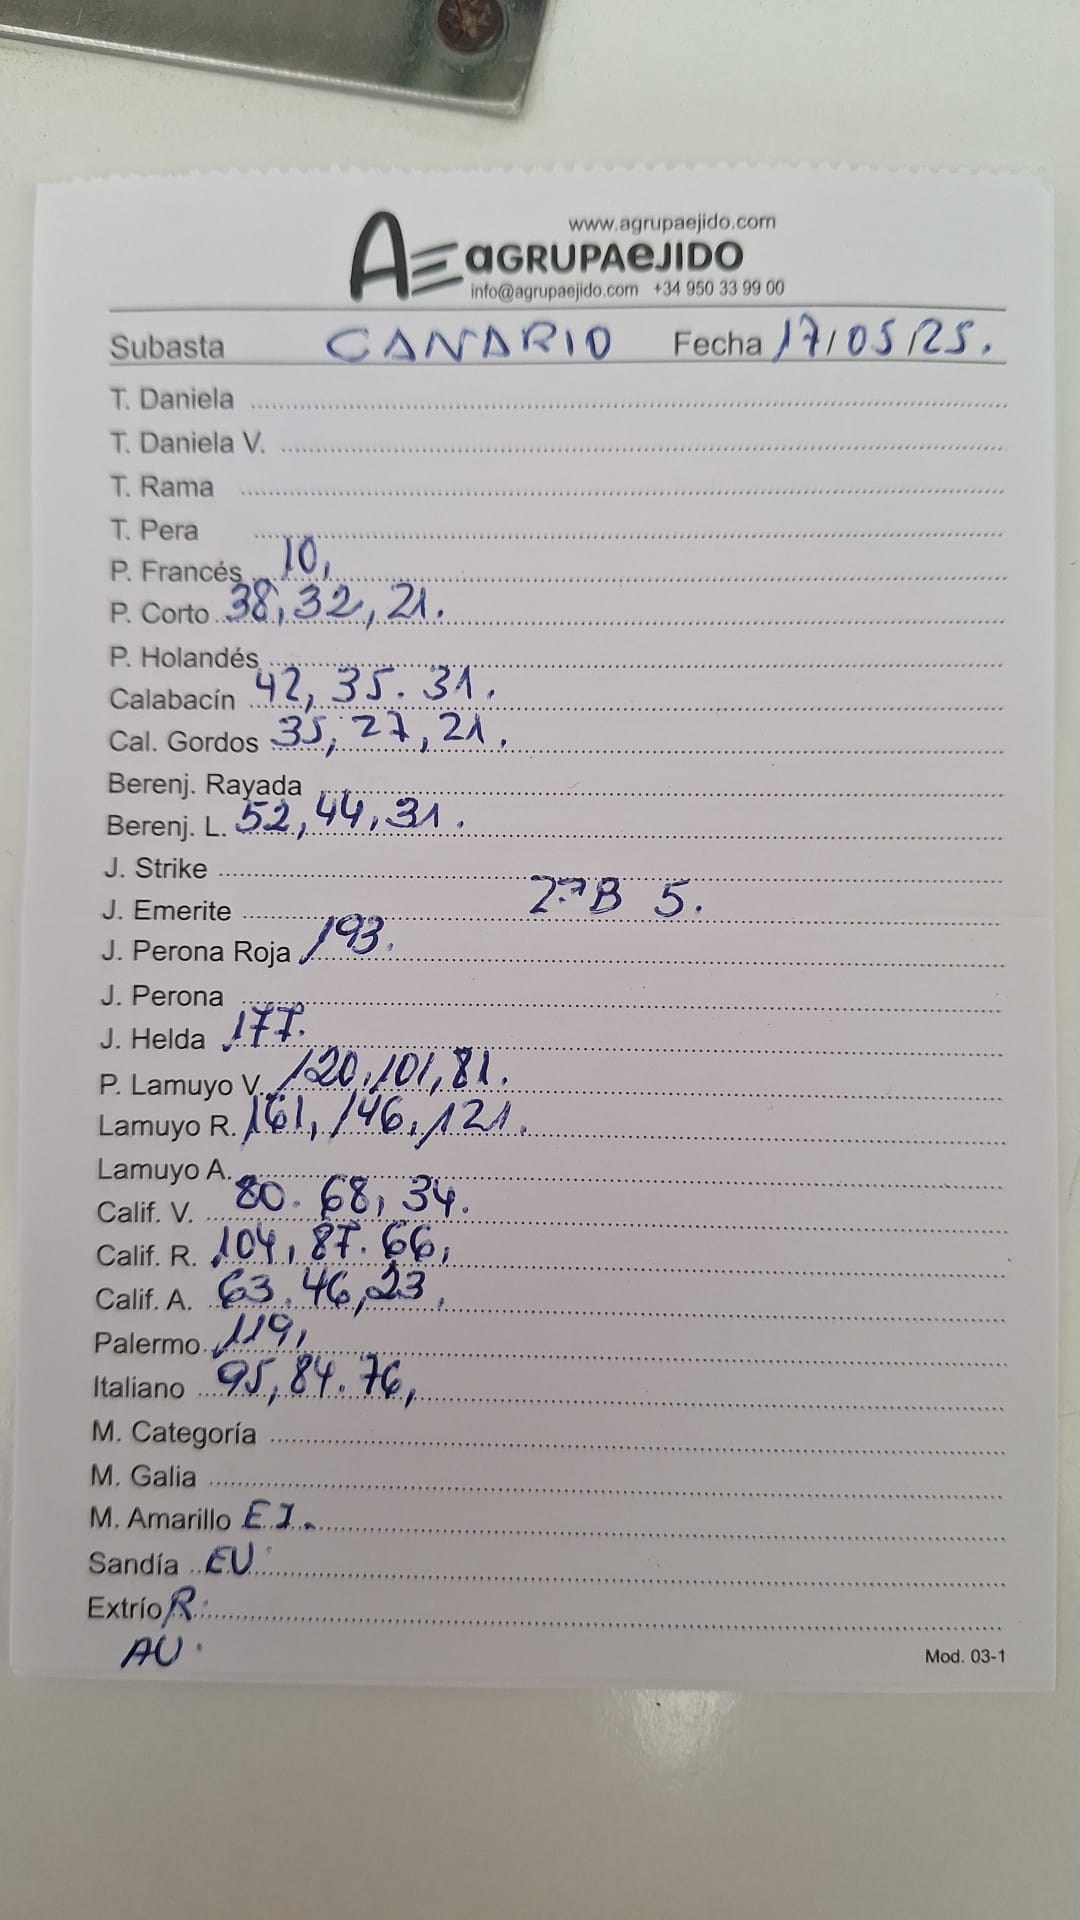 www.agrupaejido.com
AE aGRUPAeJIDO
info@agrupaejido.com +34 950 33 99 00
Subasta CANARIO Fecha 17/05/25.
T. Daniela
T. Daniela V.
T. Rama
T. Pera
P. Francés 10,
P. Corto 38, 32, 21.
P. Holandés
Calabacín 42, 35. 31.
Cal. Gordos 35, 27, 21.
Berenj. Rayada
Berenj. L. 52, 44, 31.
J. Strike
J. Emerite B 5.
J. Perona Roja 193.
J. Perona
J. Helda 177.
P. Lamuyo V. 120, 101, 81.
Lamuyo R. 161, 146, 121.
Lamuyo A.
Calif. V. 80. 68, 34.
Calif. R. 104, 87. 66,
Calif. A. 63. 46, 23,
Palermo 119,
Italiano 95, 84. 76,
M. Categoría
M. Galia
M. Amarillo E I.
Sandía EU.
Extrío R.
AU.
Mod. 03-1